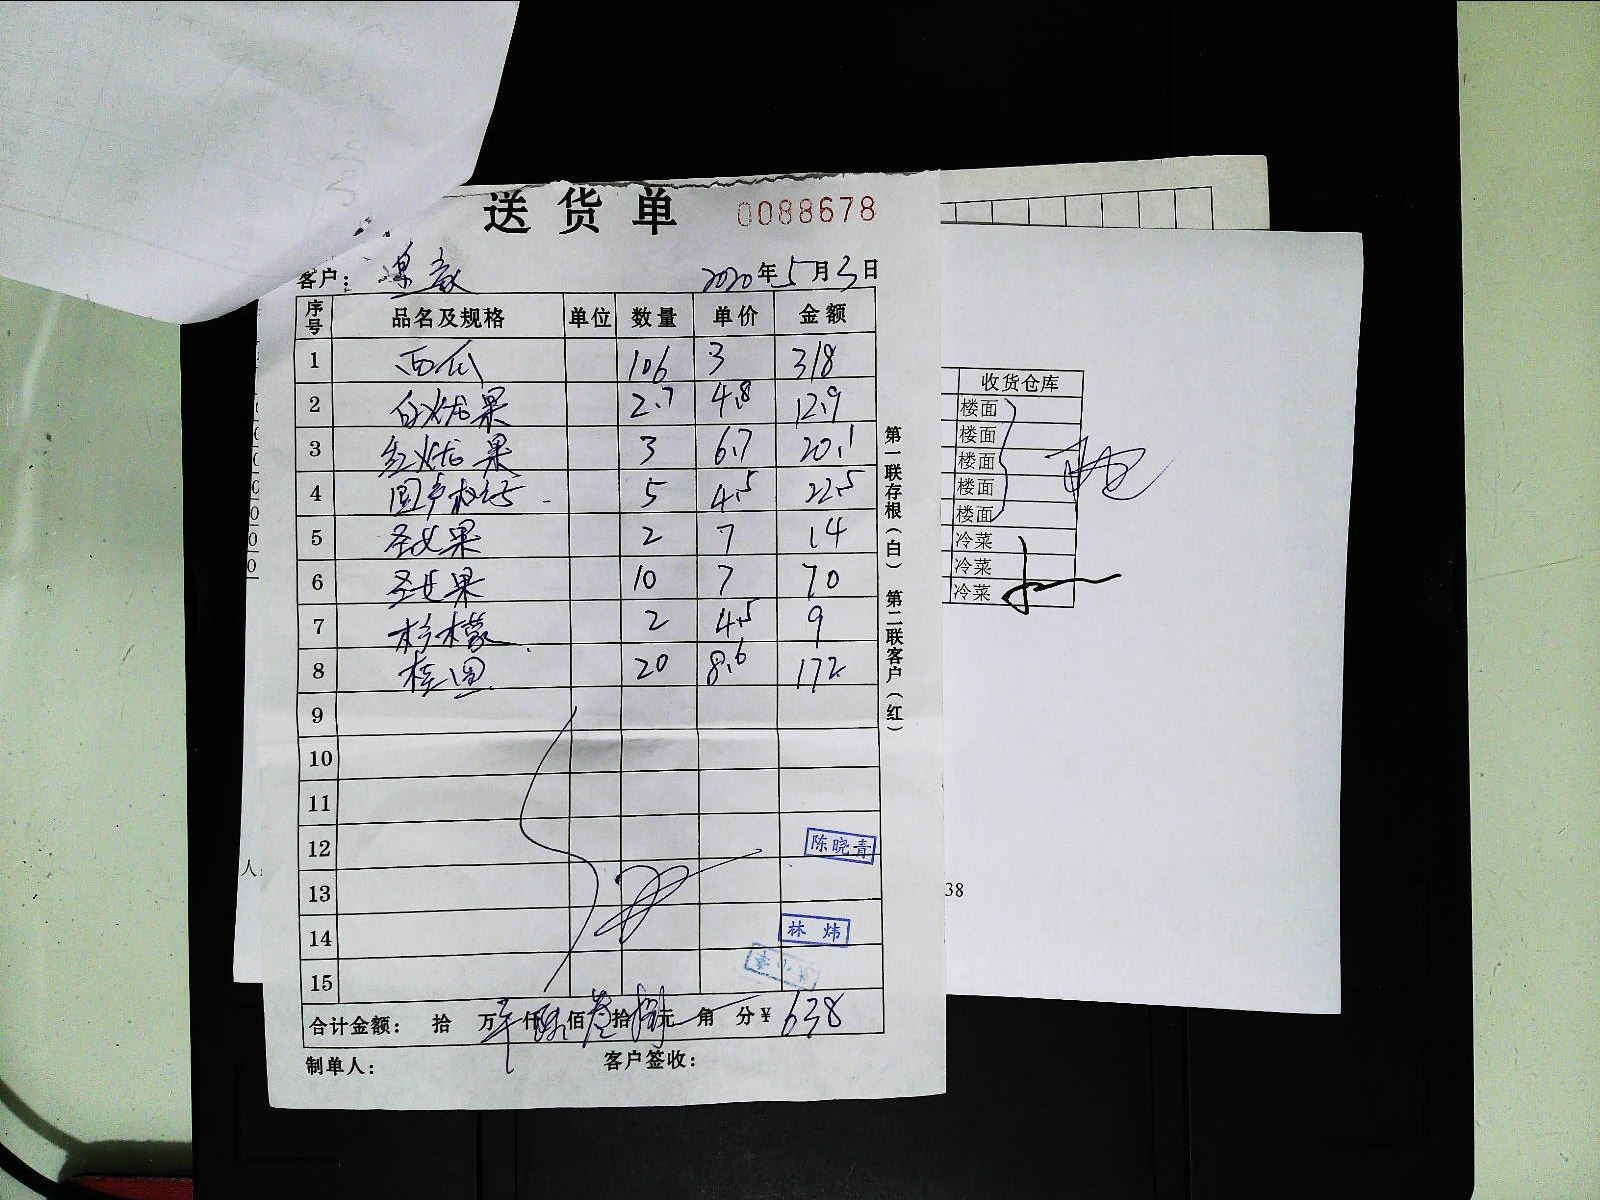 送货单 0088678
客户： 2020年5月3日
序号 品名及规格 单位 数量 单价 金额
1 西瓜 106 3 318
2 白火龙果 2.7 4.8 12.9
3 红火龙果 3 6.7 20.1
4 5 4.5 22.5
5 圣女果 2 7 14
6 圣女果 10 7 70
7 柠檬 2 4.5 9
8 桂圆 20 8.6 172
9
10
11
12 陈晓青
13
14 林炜
15
合计金额： 拾 万 仟 陆佰叁拾捌元 角 分 ¥ 638
制单人： 客户签收：
第一联存根（白） 第二联客户（红）
收货仓库
楼面
楼面
楼面
楼面
楼面
冷菜
冷菜
冷菜
38